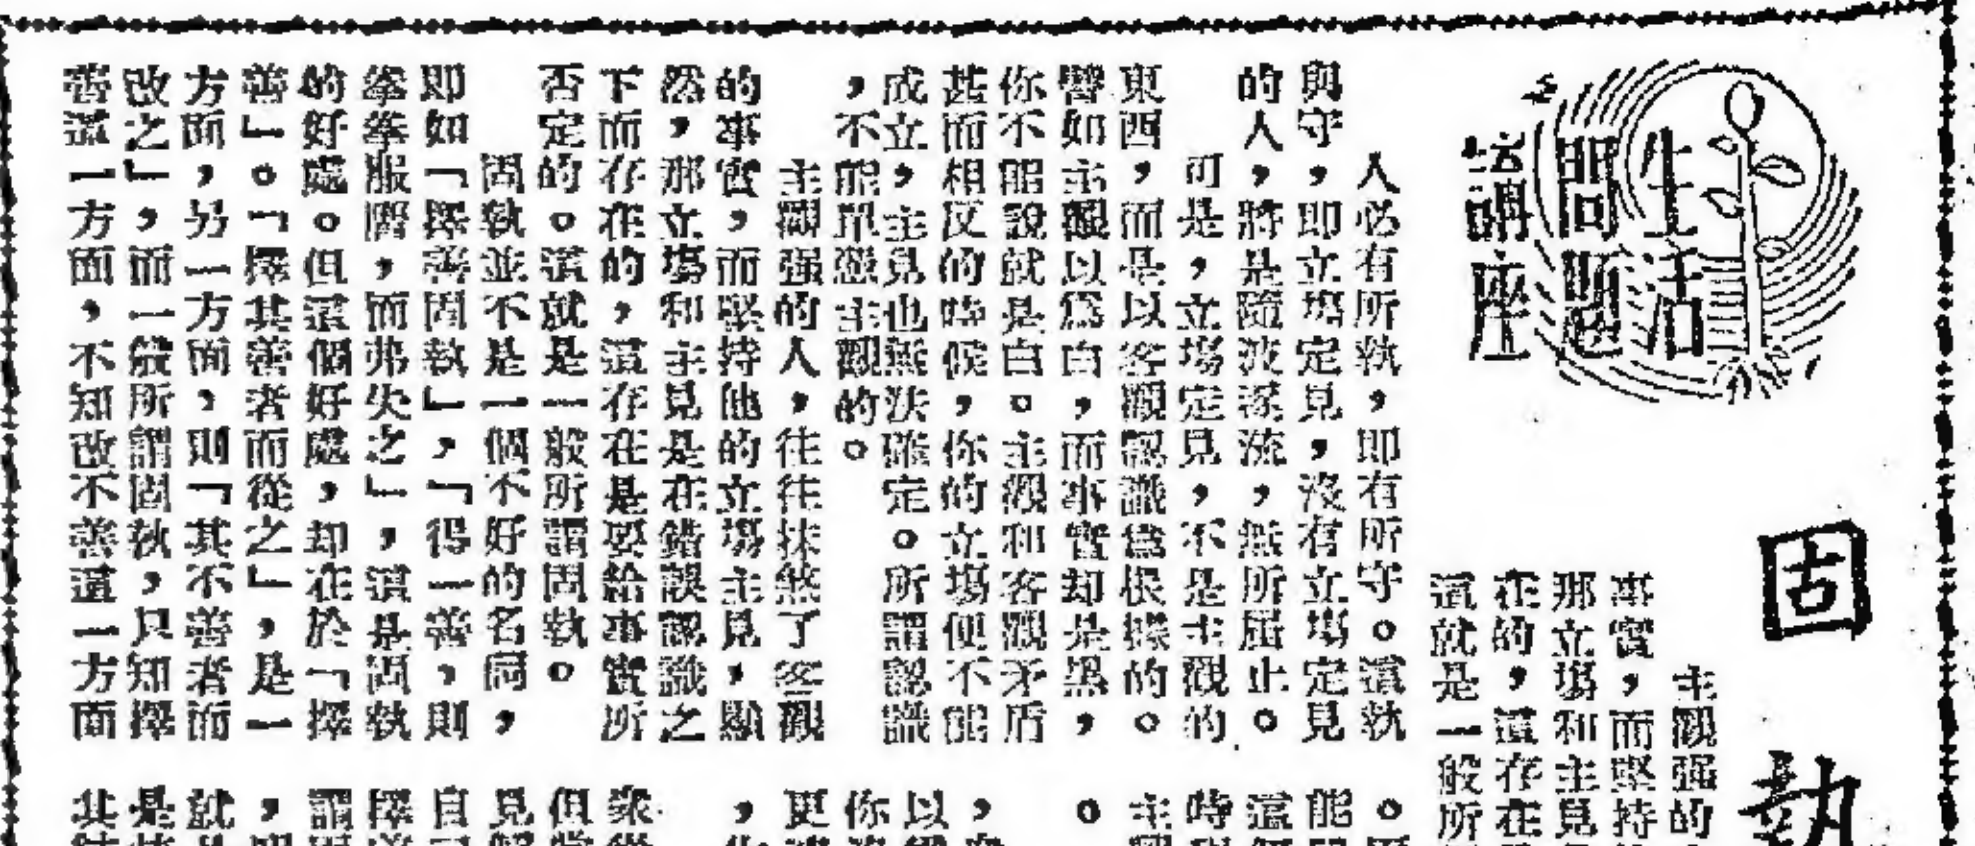 生活
問題
講座
固執
主觀强的
事實，而堅持
那立場和主見
在的，這存在
這就是一般所
人必有所執，即有所守。這執
與守，即立場定見，沒有立場定見
的人，將是隨波逐流，無所屆止。
可是，立場定見，不是主觀的
東西，而是以客觀認識爲根據的。
譬如主觀以爲白，而事實却是黑，
你不能說就是白。主觀和客觀矛盾
甚而相反的時候，你的立場便不能
成立，主見也無法確定。所謂認識
，不能單憑主觀的。
主觀强的人，往往抹煞了客觀
的事實，而堅持他的立場主見，顯
然，那立場和主見是在錯誤認識之
下而存在的，這存在是要給事實所
否定的。這就是一般所謂固執。
固執並不是一個不好的名詞，
即如「擇善固執」，「得一善，則
拳拳服膺，而弗失之」，這是固執
的好處。但這個好處，却在於「擇
善」。「擇其善者而從之」，是一
方面，另一方面，則「其不善者而
改之」，而一般所謂固執，只知擇
善這一方面，不知改不善這一方面
能
這
時
主
以
你
更
衆
但
見
自
擇
謂
就
是
其